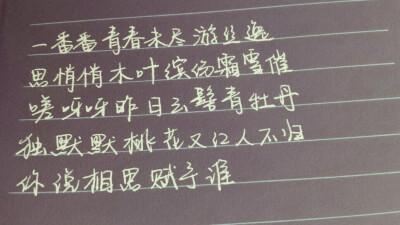 一番番青春未尽游丝逸
思悄悄木叶缤纷霜雪催
嗟呀呀昨日云髻青牡丹
独默默桃花又红人不归
你说相思赋予谁